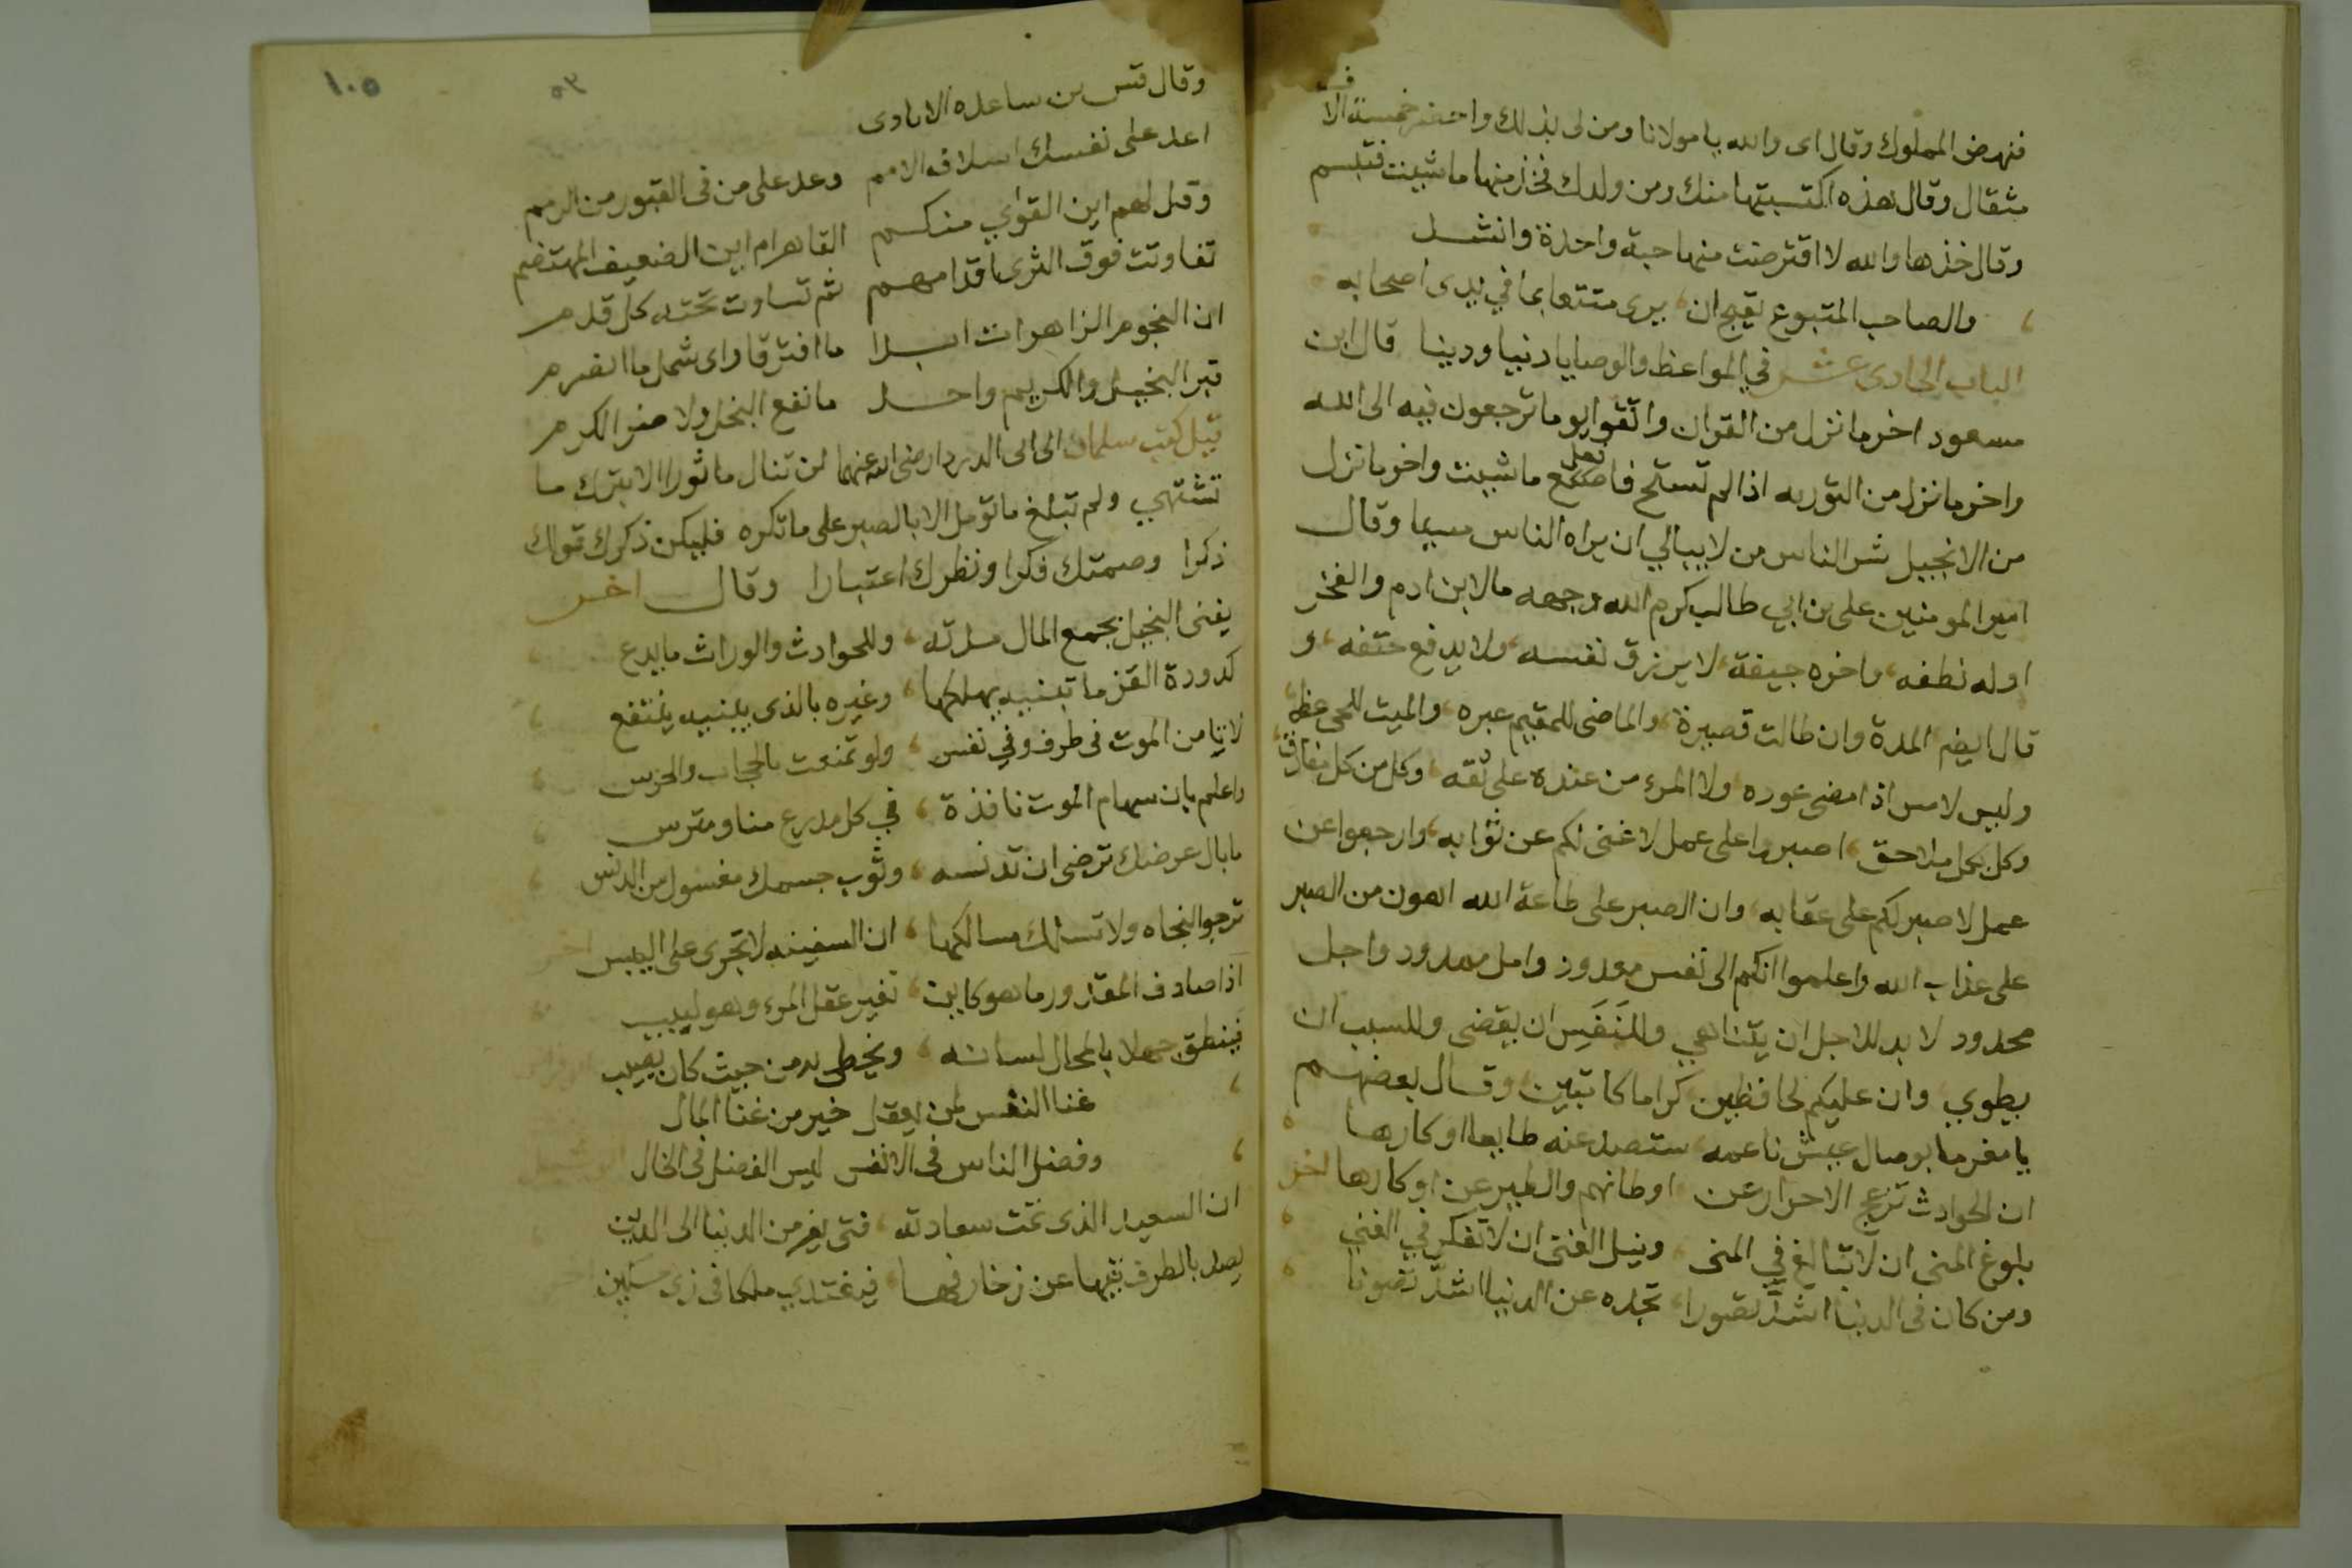 فنهض المملوك وقال اى والله يا مولانا ومن لى بذلك واحضر خمسة الاف
مثقال وقال هذه اكتسبتها منك ومن ولدك فخذ منها ما شيت فتبسم
وقال خذها والله لا اقترضت منها حبة واحدة وانشد
والصاحب المتبوع يقبح ان يرى متتبعا بما في يدى اصحابه
الباب الحادى عشر في المواعظ والوصايا دنيا ودينا قال ابن
مسعود اخر ما نزل من القران واتقوا يوما ترجعون فيه الى الله
واخر ما نزل من التوريه اذا لم تستح فاصنع ما شيت واخر ما نزل
من الانجيل شر الناس من لا يبالي ان يراه الناس مسيا وقال
امير المومنين على بن ابي طالب كرم الله وجهه ما لابن ادم والفخر
اوله نطفه واخره جيفة لا يرزق نفسه ولا يدفع حتفه و
قال ايضا المدة وان طالت قصيرة والماضى للمقيم عبره والميت للحى عظه
وليس لامس اذا مضى عوده ولا المرء من عنده على ثقه وكل من كل مفارق
وكل بكل ملاحق اصبروا على عمل لا غنى لكم عن ثوابه وارجعوا عن
عمل لا صبر لكم على عقابه وان الصبر على طاعة الله اهون من الصبر
على عذاب الله واعلموا انكم الى نفس معدود وامل ممدود واجل
محدود لا بد للاجل ان يتناهي وللنَفَس ان يقضى وللسبب ان
يطوي وان عليكم لحافظين كراما كاتبين وقال بعضهم
يا مغرما بوصال عيش ناعمه ستصد عنه طايعا او كارها
ان الحوادث تزعج الاحرار عن اوطانهم والطير عن اوكارها اخر
بلوغ المنى ان لا تبالغ في المنى ونيل الغنى ان لا تفكر في الغنى
ومن كان فى الدنيا اشدَّ تصورا تجده عن الدنيا اشدَّ تصونا
١٠٥
٥٣
وقال قس بن ساعده الايادى
اعد على نفسك اسلاف الامم وعد على من فى القبور من الرمم
وقل لهم اين القواي منكم القاهر ام اين الضعيف المهتضم
تفاوتت فوق الثرى اقدامهم ثم تساوت تحته كل قدم
ان النجوم الزاهرات ابدا ما افترقا واى شمل ما انصرم
قبر البخيل والكريم واحد ما نفع البخل ولا ضر الكرم
قيل كتب سلمان الى ابى الدردا رضى الله عنهما لن تنال ما ثورا الا بترك ما
تشتهي ولم تبلغ ما تومل الا بالصبر على ما تكره فليكن ذكرك قولك
ذكرا وصمتك فكرا ونظرك اعتبارا وقال اخر
يفنى البخيل بجمع المال مدته وللحوادث والوراث ما يدع
كدودة القز ما تبنيه يهلكها وغيره بالذى يبنيه ينتفع
لا تامن الموت فى طرف وفي نفس ولو تمنعت بالحجاب والحرس
واعلم بان سهام الموت نافذة في كل مدرع منا ومترس
ما بال عرضك ترضى ان تدنسه وثوب جسمك مغسول من الدنس
ترجو النجاه ولا تسلك مسالكها ان السفينه لا تجرى على اليبس اخر
اذا صادف المقدور ما هو كاين تغير عقل المرء وهو لبيب
فينطق جهلا بالمحال لسانه ويخطى به من حيث كان يصيب
غنا النفس لمن يعقل خير من غنا المال
وفضل الناس فى الانفس ليس الفضل فى الحال
ان السعيد الذى تمت سعادته فتى يفر من الدنيا الى الدين
يصد بالطرف تيها عن زخارفها فيغتدي ملكا فى زي مسكين